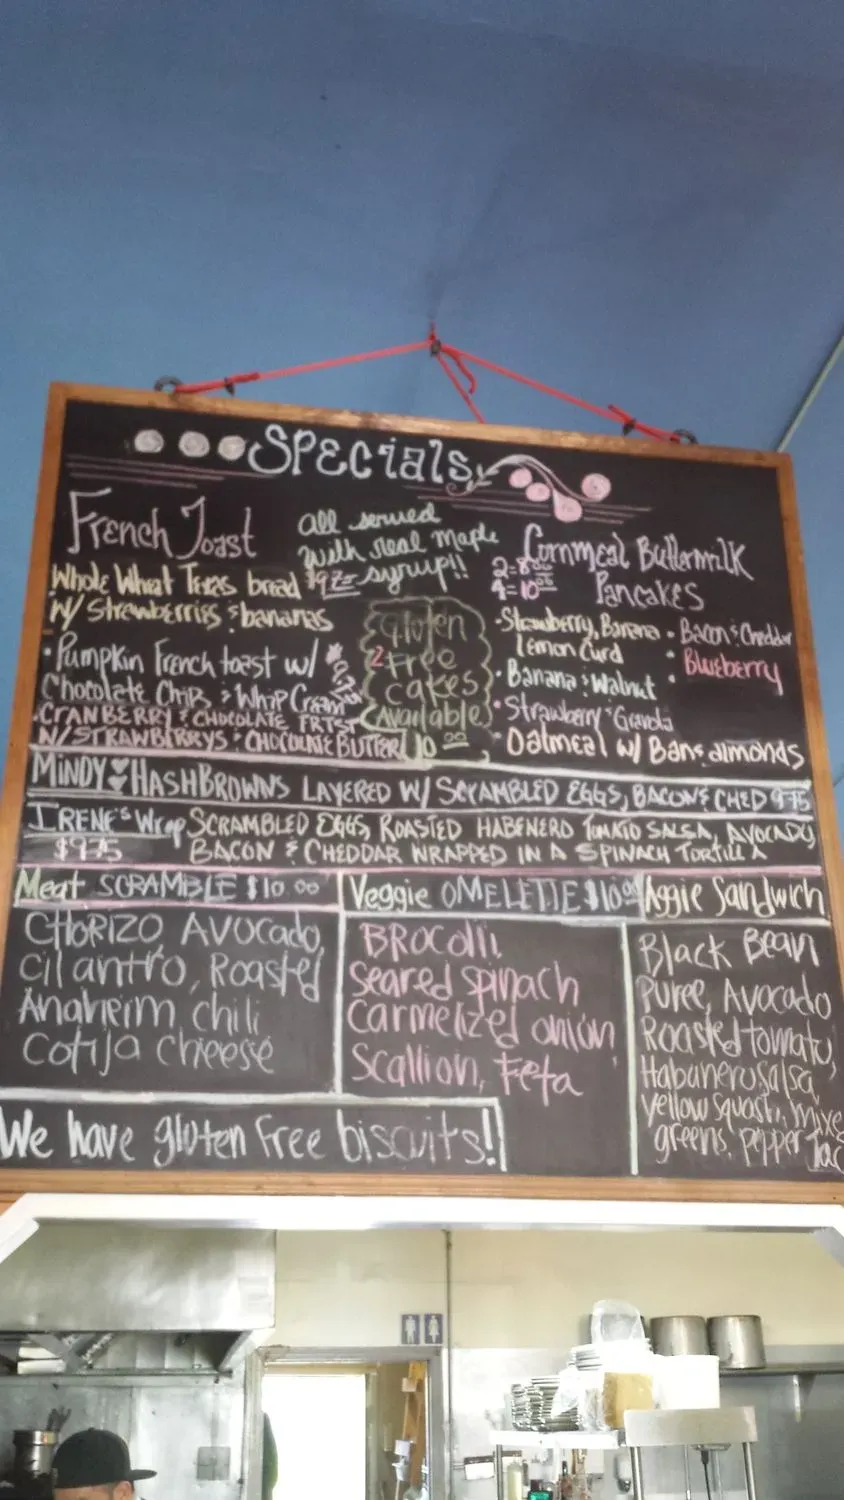 Specials
French Toast
All served
with real maple
syrup!!
Whole Wheat Texas bread
w/ Strawberries & bananas
• Pumpkin French toast w/
Chocolate Chips & Whip Cream
• CRANBERRY & CHOCOLATE FRTST
W/STRAWBERRYS & CHOCOLATE BUTTER
Gluten
Free
cakes
Available
2
10.00
Cornmeal Buttermilk
Pancakes
2=8
4=10
• Strawberry, Banana
Lemon Curd
• Banana & Walnut
• Strawberry & Granola
• Oatmeal w/ Ban & almonds
• Bacon & Cheddar
• Blueberry
MINDY HASHBROWNS LAYERED W/ SCRAMBLED EGGS, BACON & CHED 9.75
IRENE'S Wrap SCRAMBLED EGGS, ROASTED HABENERO TOMATO SALSA, AVOCADO
$9.75 BACON & CHEDDAR WRAPPED IN A SPINACH TORTILLA
Meat SCRAMBLE $10.00
CHORIZO, AVOCADO,
cilantro, Roasted
Anaheim chili
cotija cheese
Veggie OMELETTE $10
BROCOLLI,
seared spinach
carmelized onion,
Scallion, Feta
Aggie Sandwich
Black Bean
Puree, Avocado
Roasted tomato,
Habanero salsa,
yellow squash, mixe
greens, pepper Jac
We have gluten free biscuits!